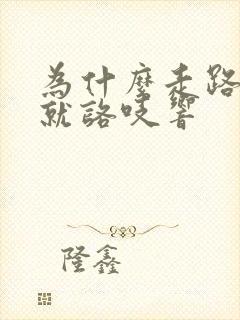 為什麼走路
就詻吱響
隆鑫